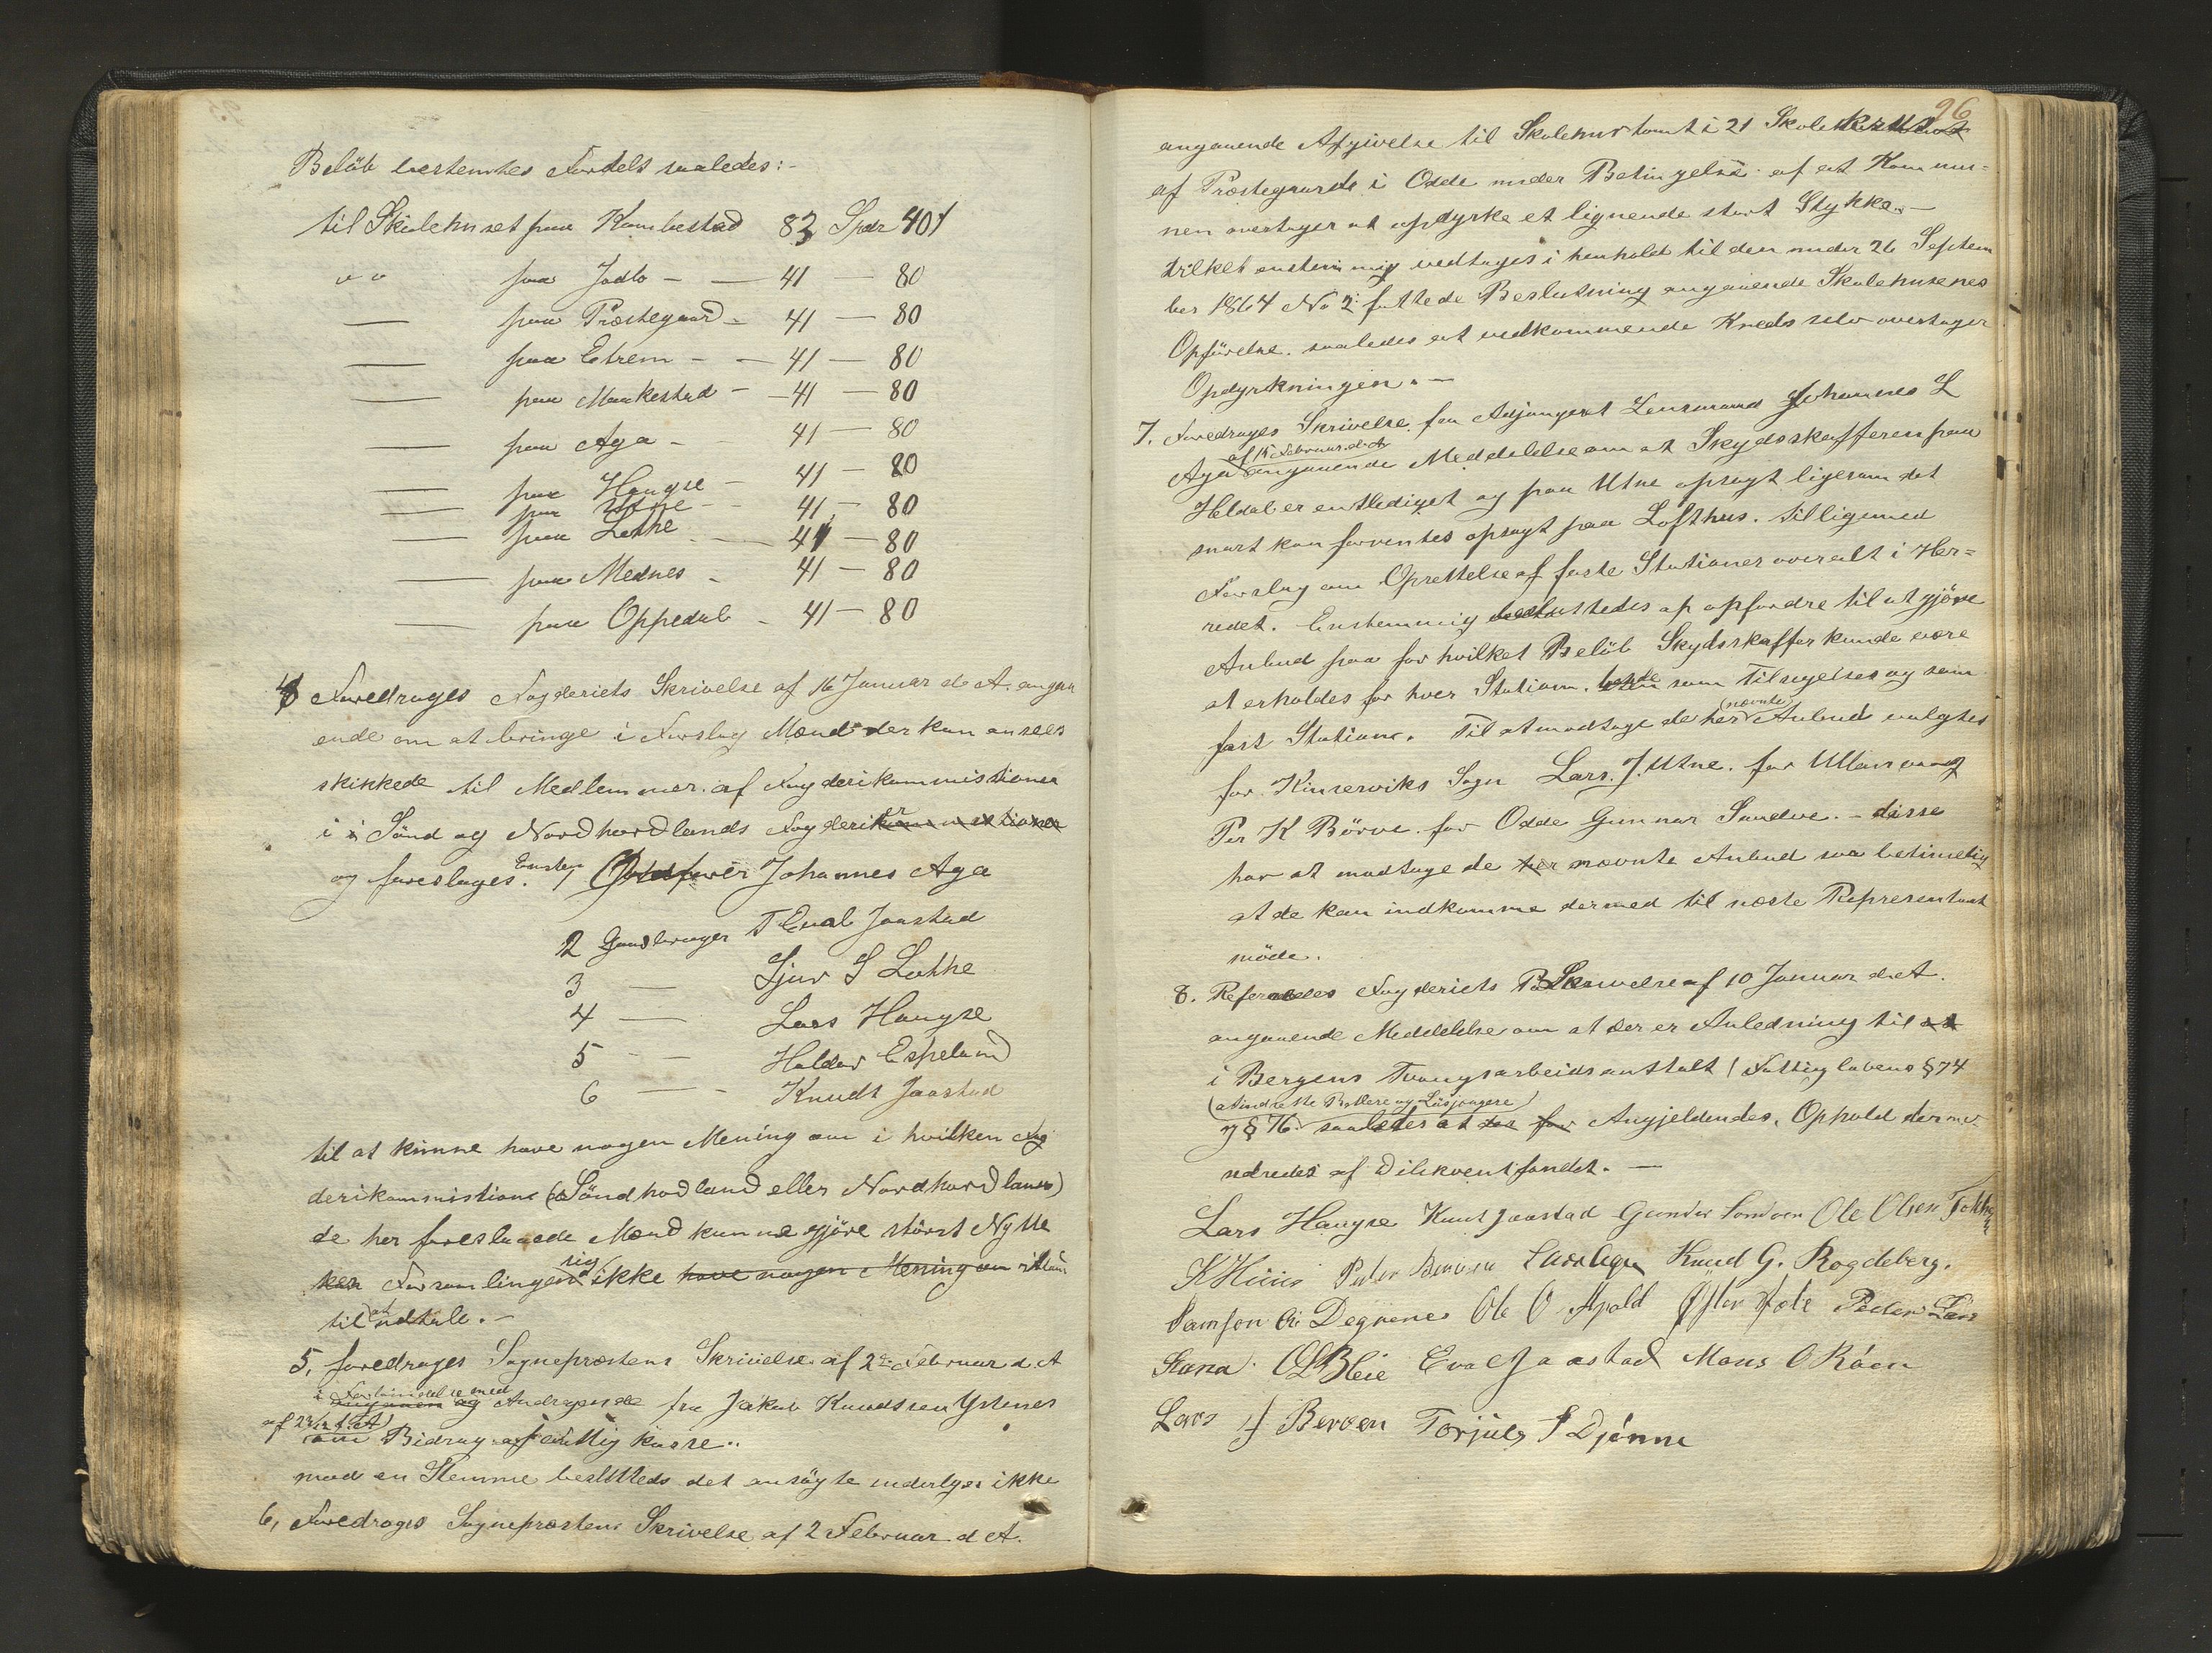 Beløb bestemtes fordelt saaledes:-
til Skolehuset paa Kambestad 83 Spdr 40ß
" " paa Jadlo - - 41 - 80
— paa Præstegaard - 41 - 80
— paa Eitrem - - 41 - 80
— paa Maakestad - - 41 - 80
— paa Aga - 41 - 80
— paa Haugse - 41 - 80
— paa Utne - 41 - 80
— paa Lothe - 41 - 80
— paa Mednes - 41 - 80
— paa Oppedal - 41 - 80
4 Foredroges Fogderiets Skrivelse af 16 Januar d. A. angaa
ende om at bringe i Forslag Mænd der kan ansees
skikkede til Medlemmer af Fogderikommissionen
i Sønd og Nordhordlands Fogderier
og foresloges. Enstem 1 Johannes Aga
2 Gaardbruger T Eval Jaastad
3 — Sjur S Lothe
4 — Lars Haugse
5 - — Haldor Espeland
6 — - Knudt Jaastad
til at kunne have nogen Mening om i hvilken Fog
derikommission (Søndhordland eller Nordhordland)
de her foreslaaede Mænd kunne gjøre størst Nytte
Forsamlingen sig ikke have nogen Mening om istand
til at udtale.-
5, foredroges Sognepræstens Skrivelse af 2de Februar d. A
i Forbindelse med Andragende fra Jakob Knudtsen Ystenes
om Bidrag af Fattigkasse..
mod en Stemme besluttedes det ansøgte indvilges ikke
6, Foredroges Sognepræstens Skrivelse af 2 Februar d A.
96
angaaende Afgivelse til Skolehustomt i 21 Skolekreds
af Præstegaarde i Odde under Betingelse af at Kommu=
nen overtager at opdyrke et lignende stort Stykke.-
hvilket enstemmig vedtoges i henhold til den under 26 Septem
ber 1864 No 2 fattede Beslutning angaaende Skolehusenes
Opførelse. saaledes at vedkommende Kreds selv overtager
Opdyrkningen.-
7. Foredroges Skrivelse fra Adjungeret Lensmand Johannes L
Aga af 15 Februar d. A angaaende Meddelelse om at Skydsskafferen paa
Heldal er entlediget og paa Utne opsagt ligesom det
snart kan forventes opsagt paa Lofthus. tilligemed
Forslag om Oprettelse af faste Stationer overalt i Her=
redet. Enstemmig besluttedes at opfordre til at gjøre
Anbud paa for hvilket Beløb Skydsskaffer kunde være
at erholdes for hver Station. baade som Tilsigelses og som
fast Station. Til at modtage de her (nævnte) Anbud valgtes
for Kinserviks Sogn Lars. J. Utne. for Ullensvang
Per K Børve. for Odde Gunnar Sandve. - disse
har at modtage de her nævnte Anbud saa betimelig
at de kan indkomme dermed til næste Representant
møde.
8. Refereredes Fogderiets Skrivelse af 10 Januar d. A.
angaaende Meddelelse om at der er Anledning til at
i Bergens Tvangsarbeidsanstalt (Fattiglovens § 74
(at indsætte Betlere og Løsgjængere)
og § 76. saaledes at Angjeldendes, Ophold der
udredes af Delikventfondet.-
Lars Haugse Knut Jaastad Gunder Sandven Ole Olsen
K Huus Peder Børven Lars Aga Knud G. Rogdeberg.
Samson Degrenes Ole O Apold Peder Lars
O L Bleie Eval Jaastad Mons O Råen
Lars J Berven Torjuls S Djønne